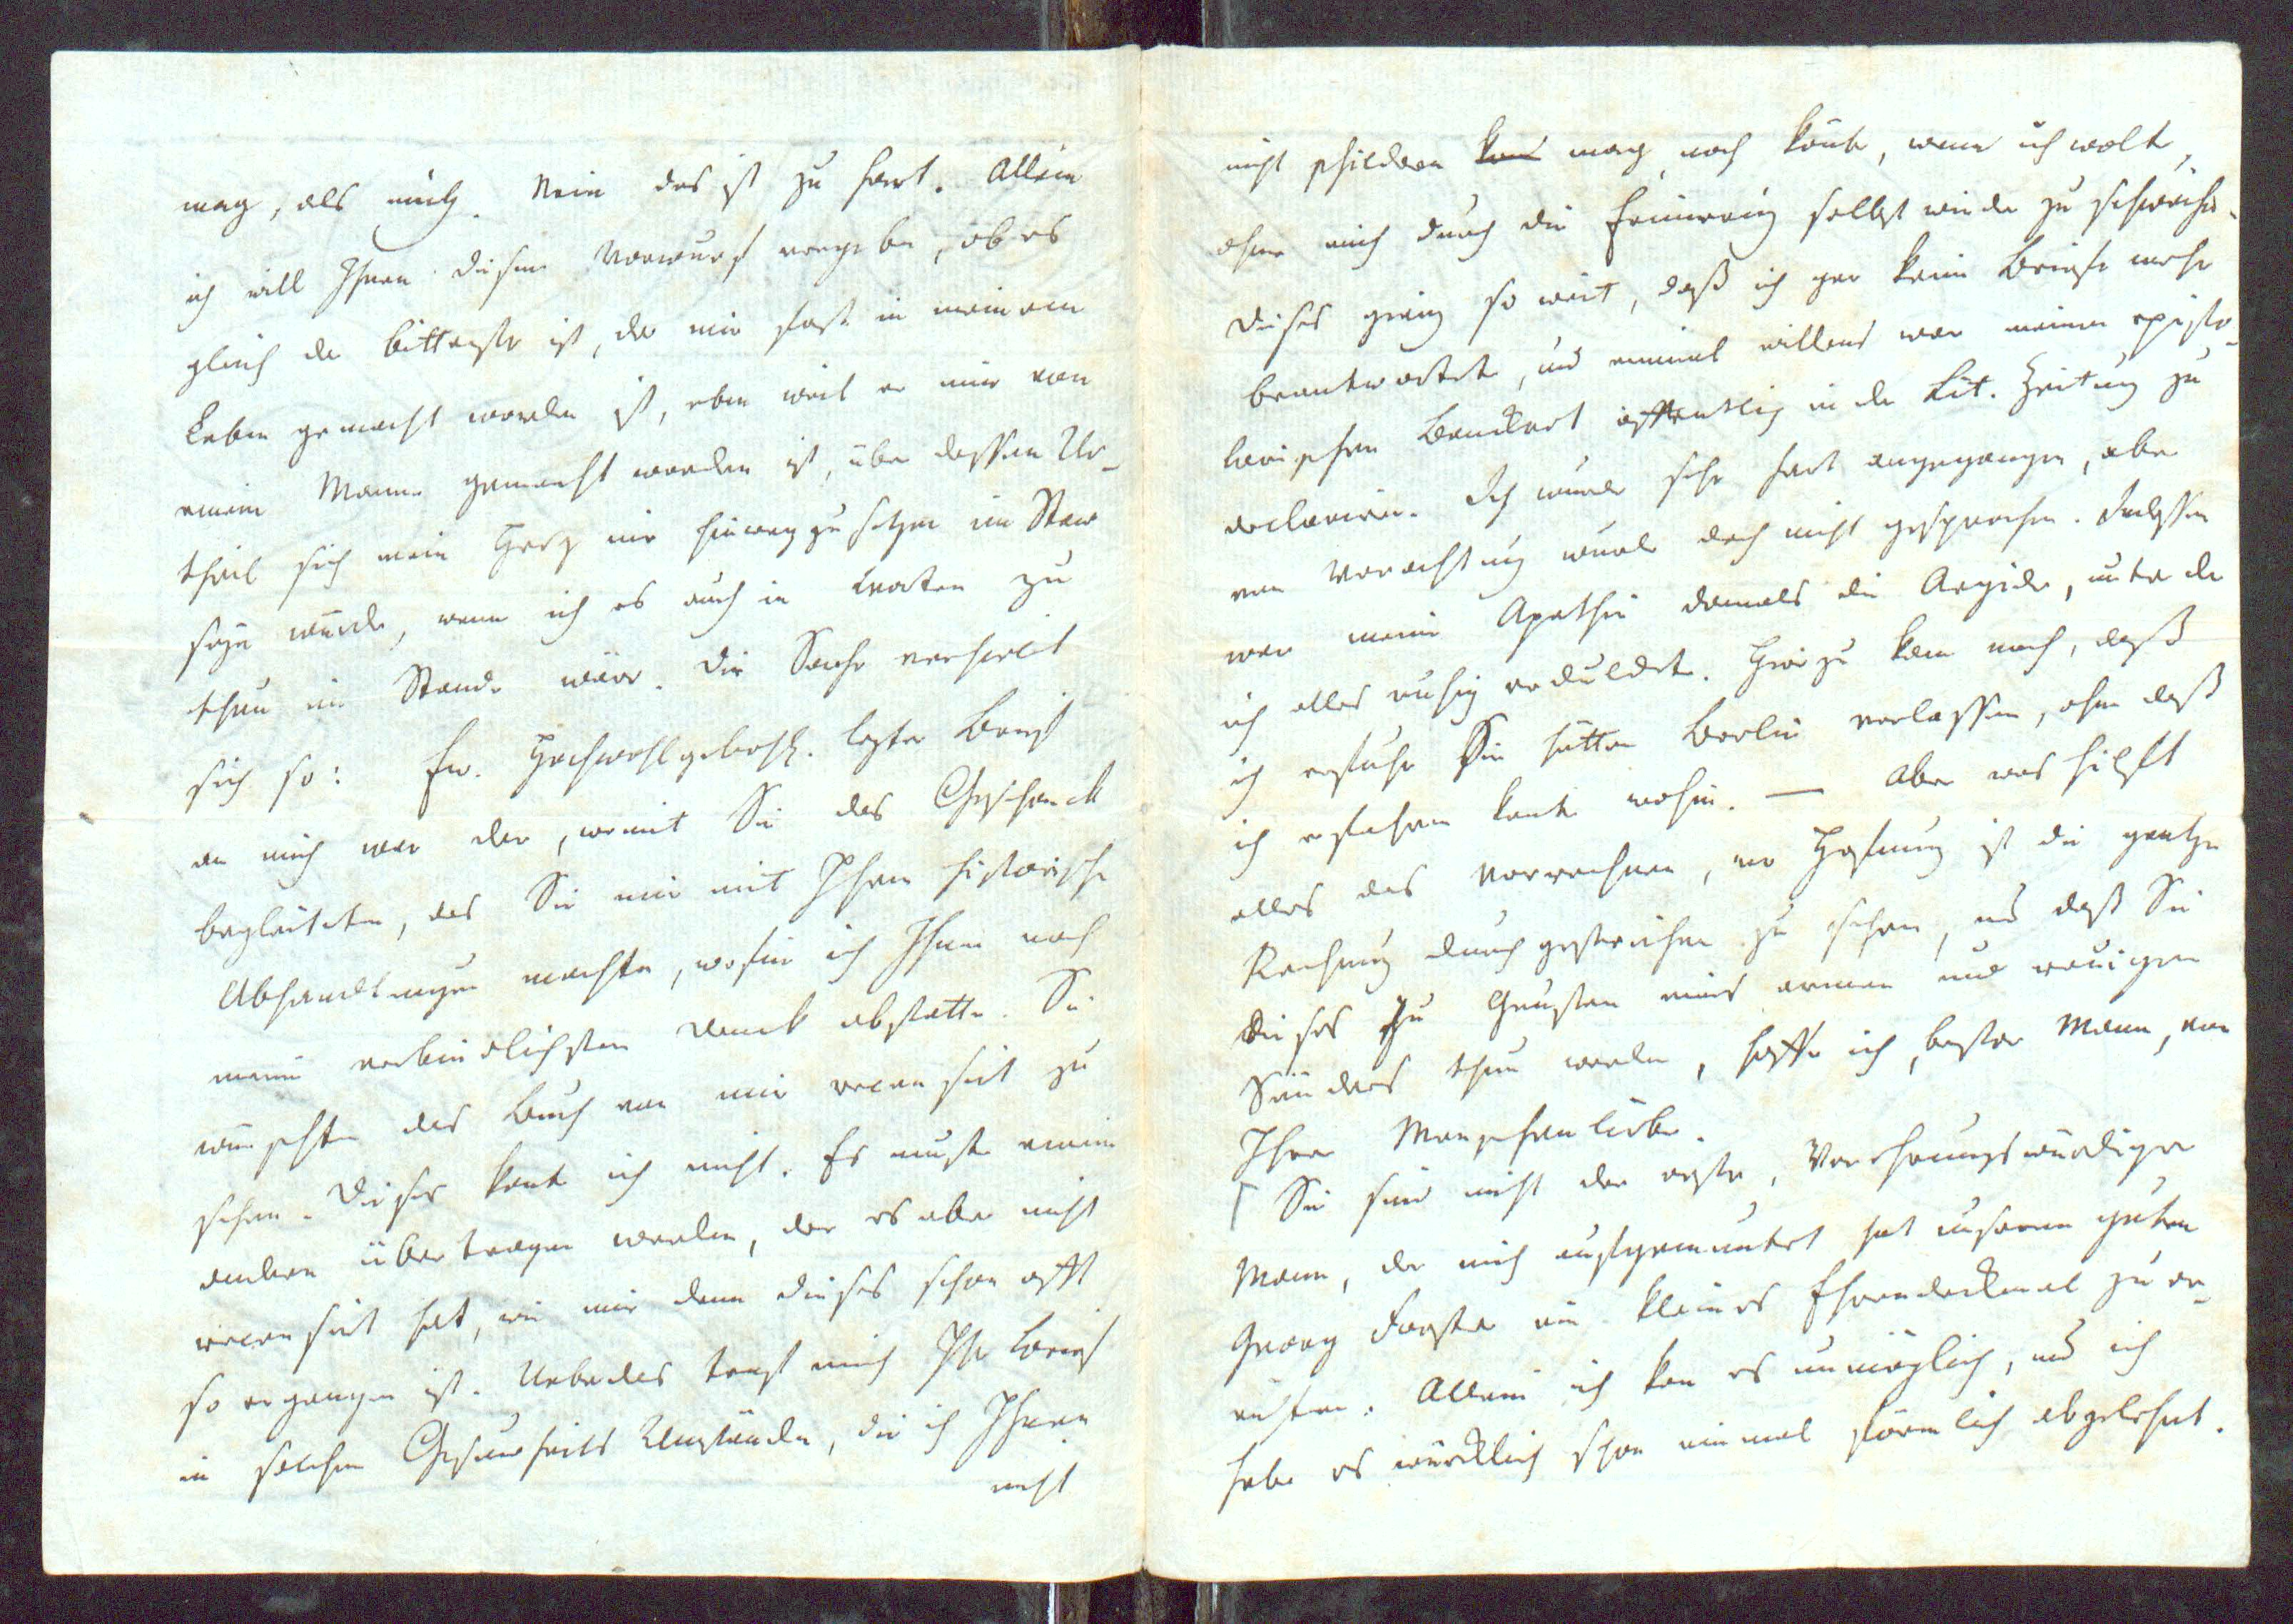 mag, als mich. Nein das ist zu hart. Allein
ich will Ihnen diesen Vorwurf vergeben, ob es
gleich der bitterste ist, der mir fast in meinem
Leben gemacht worden ist, eben weil er mir von
einem Manne gemacht worden ist, über dessen Ur-
theil sich mein Hertz nie hinweg zu setzen im Stande
seyn würde, wenn ich es auch in Worten zu
thun im Stande wäre. Die Sache verhielt
sich so: Ew. Hochwohlgebohr. lezter Brief
an mich war der, womit Sie das Geschenck
begleiteten, das Sie mir mit Ihren historischen
Abhandlungen machten, wofür ich Ihnen noch
meinen verbindlichsten Danck abstatte. Sie
wünschten das Buch von mir recensirt zu
sehen. Dieses konte ich nicht. Es muste einem
andern übertragen werden, der es aber nicht
recensirt hat, wie mir denn dieses schon offt
so ergangen ist. Ueberdas traf mich Ihr Brief
in solchen Gesundheits Umständen, die ich Ihnen
nicht
nicht schildern kan mag noch könte, wenn ich wolte,
ohne mich durch die Erinnerung selbst wieder zu schwächen.
Dieses gieng so weit, daß ich gar keine Briefe mehr
beantwortete, und einmal willens war meinen episto-
larischen Banckert öffentlich in der Lit. Zeitung zu
declariren. Ich wurde sehr hart angegangen, aber
von Verachtung wurde doch nicht gesprochen. Indessen
war meine Apathie damals die Aegide, unter der
ich alles ruhig erduldete. Hierzu kam noch, daß
ich erfuhr Sie hätten Berlin verlassen, ohne daß
ich erfahren konte wohin. — Aber was hilfft
alles das Vorrechnen, wo Hofnung ist die gantze
Rechnung durchgestrichen zu sehen, und daß Sie
dieses zu Gunsten eines armen und reuigen
Sünders thun werden, hoffe ich, bester Mann, von
Ihrer Menschenliebe.
Sie sind nicht der erste, Verehrungswürdiger
Mann, der mich aufgemuntert hat unserem guten
Georg Forster ein kleines Ehrendenckmal zu er-
richten. Allein ich kan es unmöglich, und ich
habe es würcklich schon einmal förmlich abgelehnt.